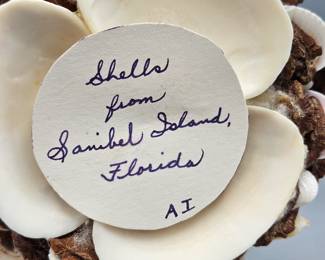 Shells
from
Sanibel Island,
Florida
AI